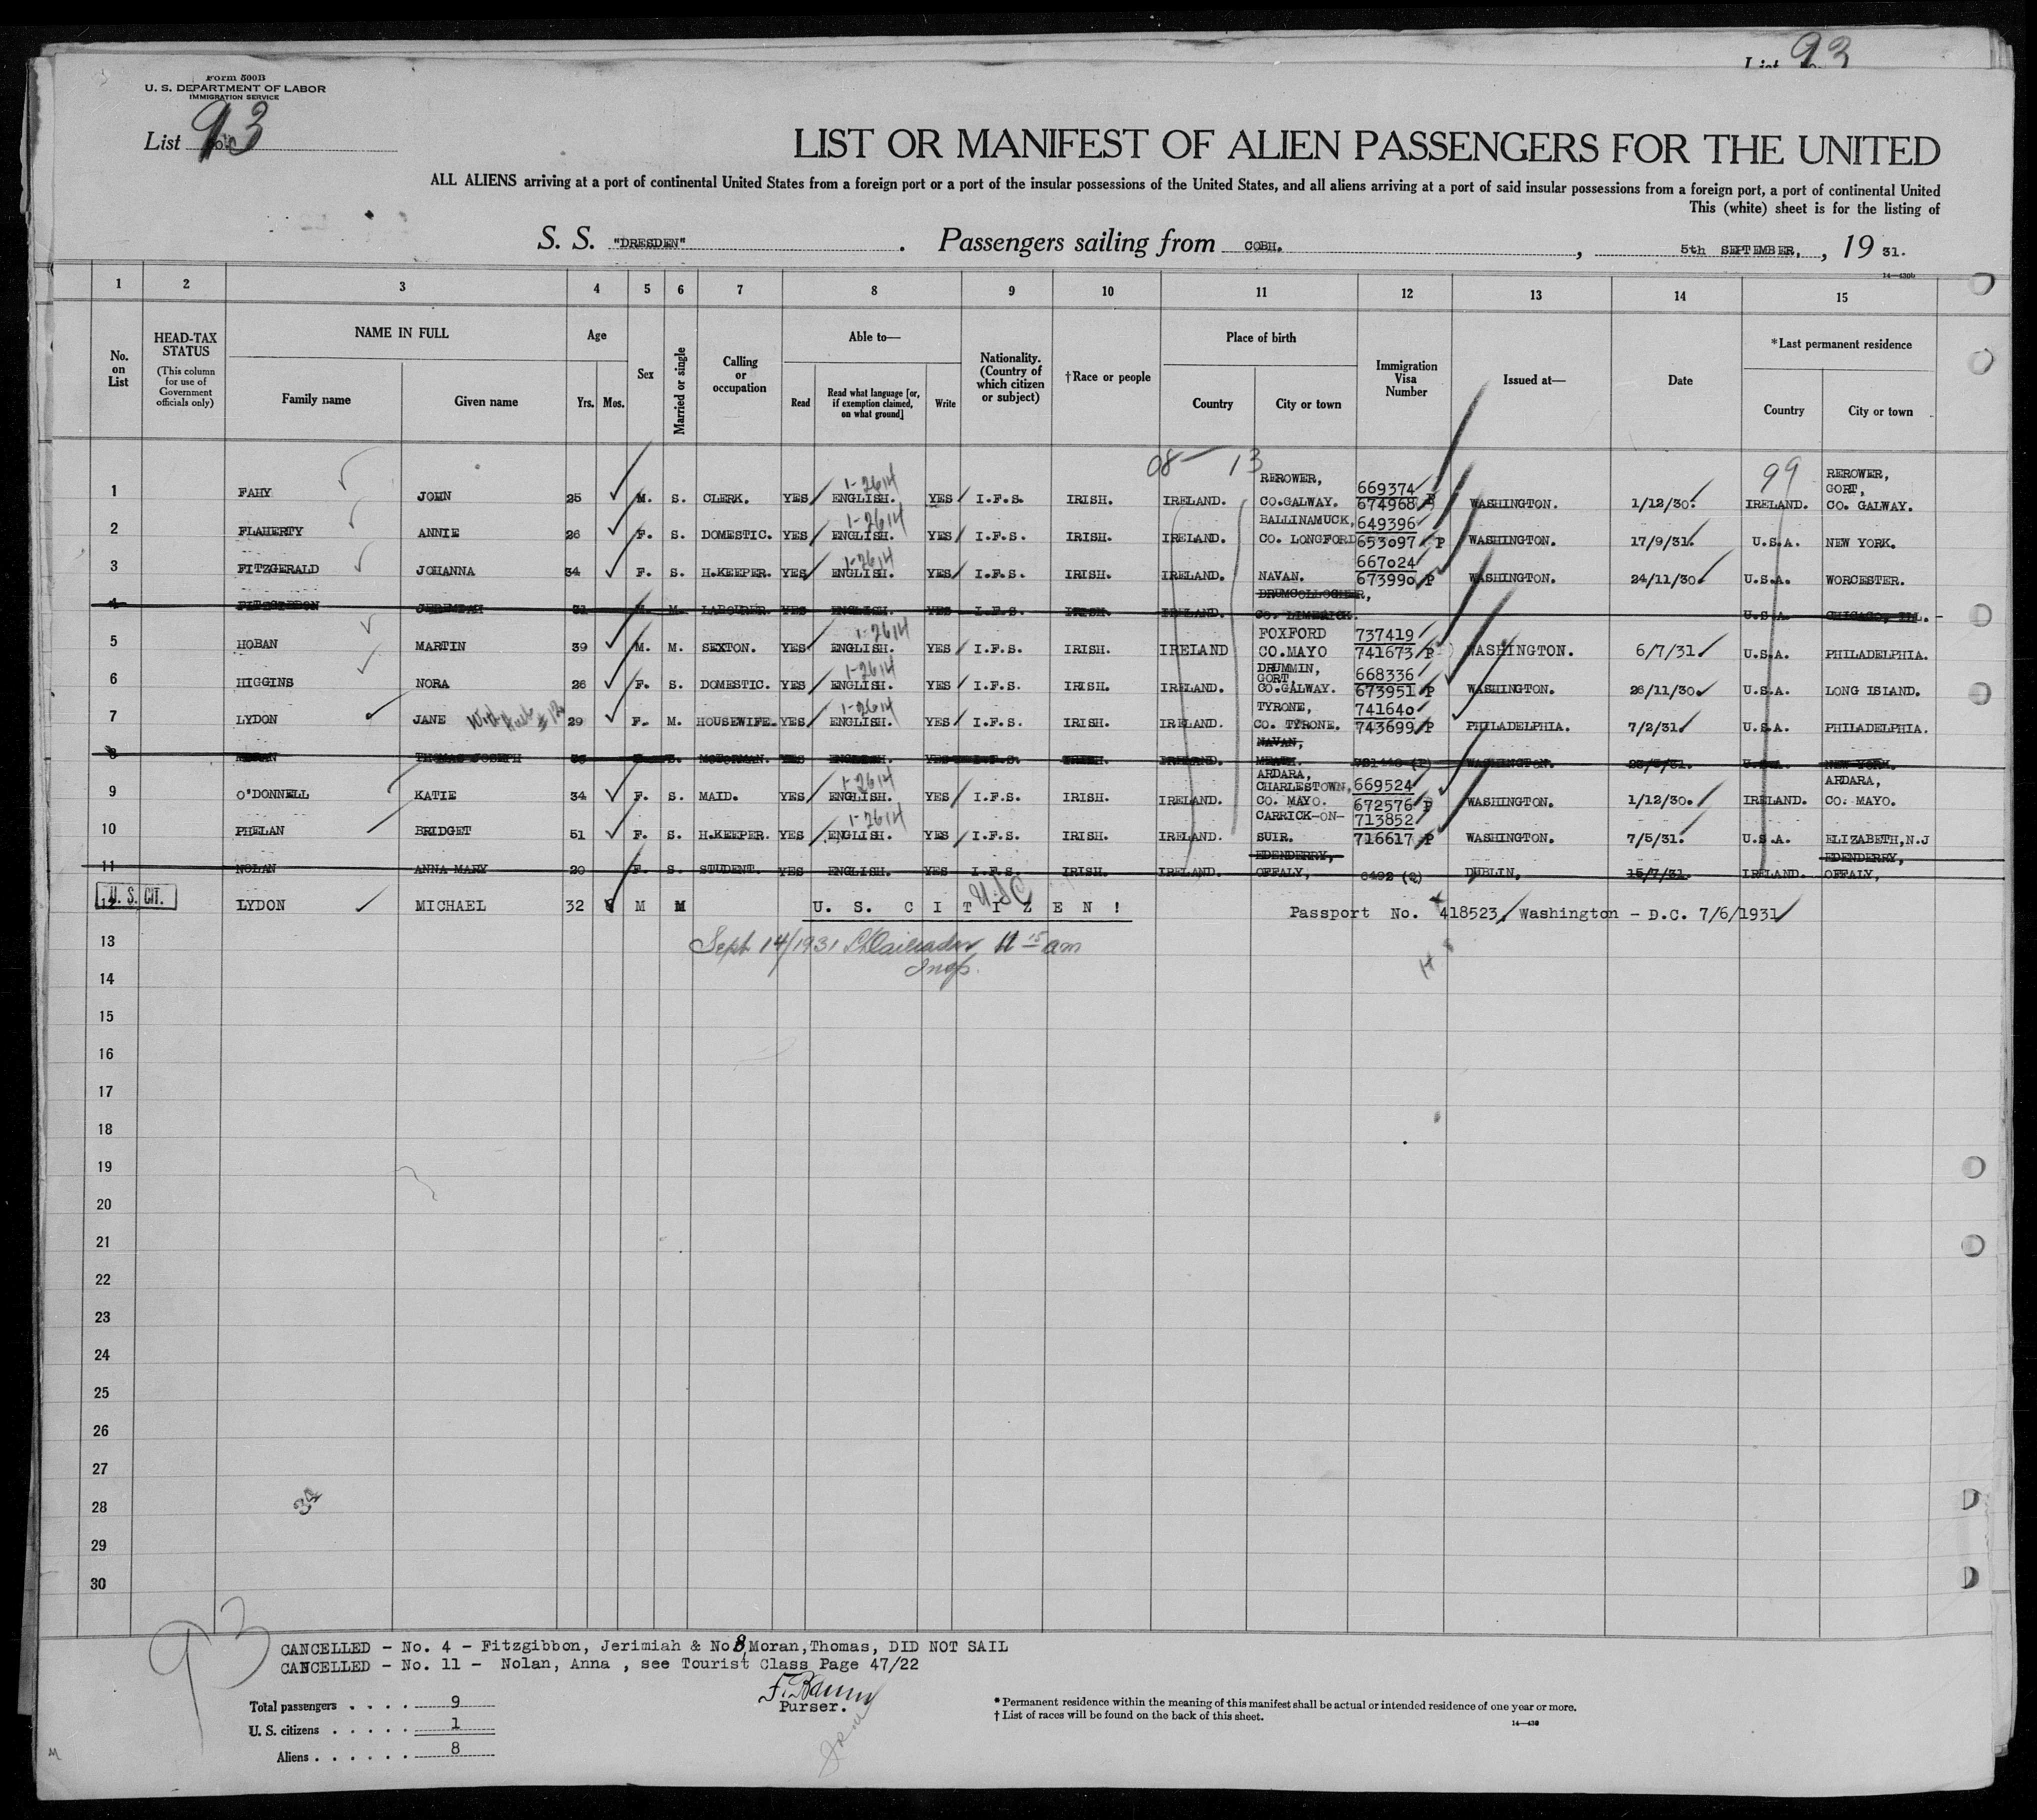 List 93
Form 500B
U. S. DEPARTMENT OF LABOR
IMMIGRATION SERVICE
List 93
LIST OR MANIFEST OF ALIEN PASSENGERS FOR THE UNITED
ALL ALIENS arriving at a port of continental United States from a foreign port or a port of the insular possessions of the United States, and all aliens arriving at a port of said insular possessions from a foreign port, a port of continental United
This (white) sheet is for the listing of
S. S. "DRESDEN". Passengers sailing from COBH. , 5th SEPTEMBER, , 19 31.
14—430b
1 2 3 4 5 6 7 8 9 10 11 12 13 14 15
No. on List
HEAD-TAX STATUS (This column for use of Government officials only)
NAME IN FULL
Family name Given name
Age
Yrs. Mos.
Sex
Married or single
Calling or occupation
Able to—
Read
Read what language [or, if exemption claimed, on what ground]
Write
Nationality. (Country of which citizen or subject)
†Race or people
Place of birth
Country City or town
Immigration Visa Number
Issued at—
Date
*Last permanent residence
Country City or town
08 — 13 99
1 FAHY JOHN 25 M. S. CLERK. YES 1-2614 ENGLISH. YES I.F.S. IRISH. IRELAND. REROWER, CO.GALWAY. 669374 674968 P WASHINGTON. 1/12/30. IRELAND. REROWER, GORT, CO. GALWAY.
2 FLAHERTY ANNIE 26 F. S. DOMESTIC. YES 1-2614 ENGLISH. YES I.F.S. IRISH. IRELAND. BALLINAMUCK, CO. LONGFORD 649396 653097 P WASHINGTON. 17/9/31. U.S.A. NEW YORK.
3 FITZGERALD JOHANNA 34 F. S. H.KEEPER. YES 1-2614 ENGLISH. YES I.F.S. IRISH. IRELAND. NAVAN. 667024 673990 P WASHINGTON. 24/11/30. U.S.A. WORCESTER.
4 FITZGIBBON JEREMIAH 31 M. M. LABOURER. YES ENGLISH. YES I.F.S. IRISH. IRELAND. DRUMCOLLOGHER, CO. LIMERICK. U.S.A. CHICAGO, ILL.
5 HOBAN MARTIN 39 M. M. SEXTON. YES 1-2614 ENGLISH. YES I.F.S. IRISH. IRELAND FOXFORD CO.MAYO 737419 741673 P WASHINGTON. 6/7/31 U.S.A. PHILADELPHIA.
6 HIGGINS NORA 26 F. S. DOMESTIC. YES 1-2614 ENGLISH. YES I.F.S. IRISH. IRELAND. DRUMMIN, GORT, CO.GALWAY. 668336 673951 P WASHINGTON. 26/11/30. U.S.A. LONG ISLAND.
7 LYDON JANE 29 F. M. HOUSEWIFE. YES 1-2614 ENGLISH. YES I.F.S. IRISH. IRELAND. TYRONE, CO. TYRONE. 741640 743699 P PHILADELPHIA. 7/2/31 U.S.A. PHILADELPHIA.
8 MORAN THOMAS JOSEPH S. MOTORMAN. YES ENGLISH. YES I.F.S. IRISH. IRELAND. NAVAN, MEATH. (P) WASHINGTON. U.S.A. NEW YORK.
9 O'DONNELL KATIE 34 F. S. MAID. YES 1-2614 ENGLISH. YES I.F.S. IRISH. IRELAND. ARDARA, CHARLESTOWN, CO. MAYO. 669524 672576 P WASHINGTON. 1/12/30. IRELAND. ARDARA, CO. MAYO.
10 PHELAN BRIDGET 51 F. S. H.KEEPER. YES 1-2614 ENGLISH. YES I.F.S. IRISH. IRELAND. CARRICK-ON-SUIR. 713852 716617 P WASHINGTON. 7/5/31. U.S.A. ELIZABETH,N.J
11 NOLAN ANNA MARY 20 F. S. STUDENT. YES ENGLISH. YES I.F.S. IRISH. IRELAND. EDENDERRY, OFFALY, DUBLIN, 15/7/31. IRELAND. EDENDERRY, OFFALY,
U. S. CIT.
12 LYDON MICHAEL 32 M M U. S. CITIZEN! USC Passport No. 418523, Washington - D.C. 7/6/1931
13 Sept 14/1931 11 15 am
Insp.
14
15
16
17
18
19
20
21
22
23
24
25
26
27
28
29
30
93
CANCELLED - No. 4 - Fitzgibbon, Jerimiah & No 8, Moran,Thomas, DID NOT SAIL
CANCELLED - No. 11 - Nolan, Anna , see Tourist Class Page 47/22
Purser.
Total passengers . . . . 9
U. S. citizens . . . . . 1
Aliens . . . . . . 8
* Permanent residence within the meaning of this manifest shall be actual or intended residence of one year or more.
† List of races will be found on the back of this sheet.
14—430